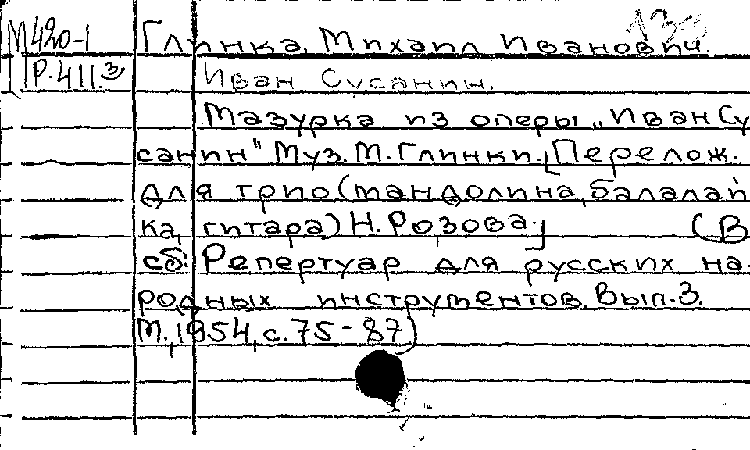 М420-1 Глинка, Михаил Иванович.
Р.411.3 Иван Сусанин.
Мазурка из оперы „Иван Су
санин" Муз. М. Глинки. [Перелож.
для трио (мандолина, балалай
ка, гитара) Н. Розова.] (В
сб: Репертуар для русских на-
родных инструментов. Вып. 3.
М., 1954, с. 75-87)